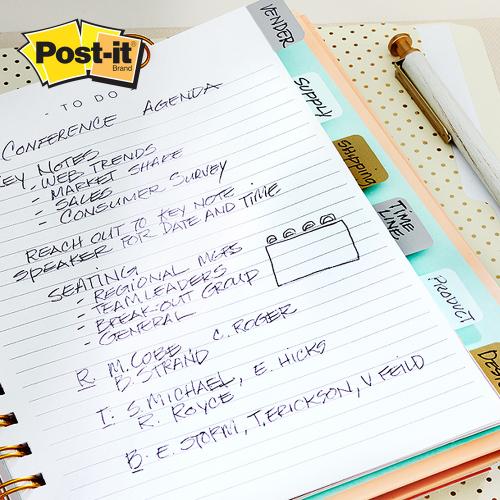 Post-it
Brand
- TO DO
CONFERENCE AGENDA
KEY NOTES
- WEB TRENDS
- MARKET SHARE
- SALES
- CONSUMER SURVEY
REACH OUT TO KEY NOTE
SPEAKER FOR DATE AND TIME
SEATING
- REGIONAL MGRS
- TEAM LEADERS
- BREAK-OUT GROUP
- GENERAL
R: M. COBE C. ROGER
B. STRAND
T: S. MICHAEL, E. HICKS
R. ROYCE
B: E. STORM, T. ERICKSON, V. FEILD
VENDER
SUPPLY
Shipping
TIME
LINE
PRODUCT